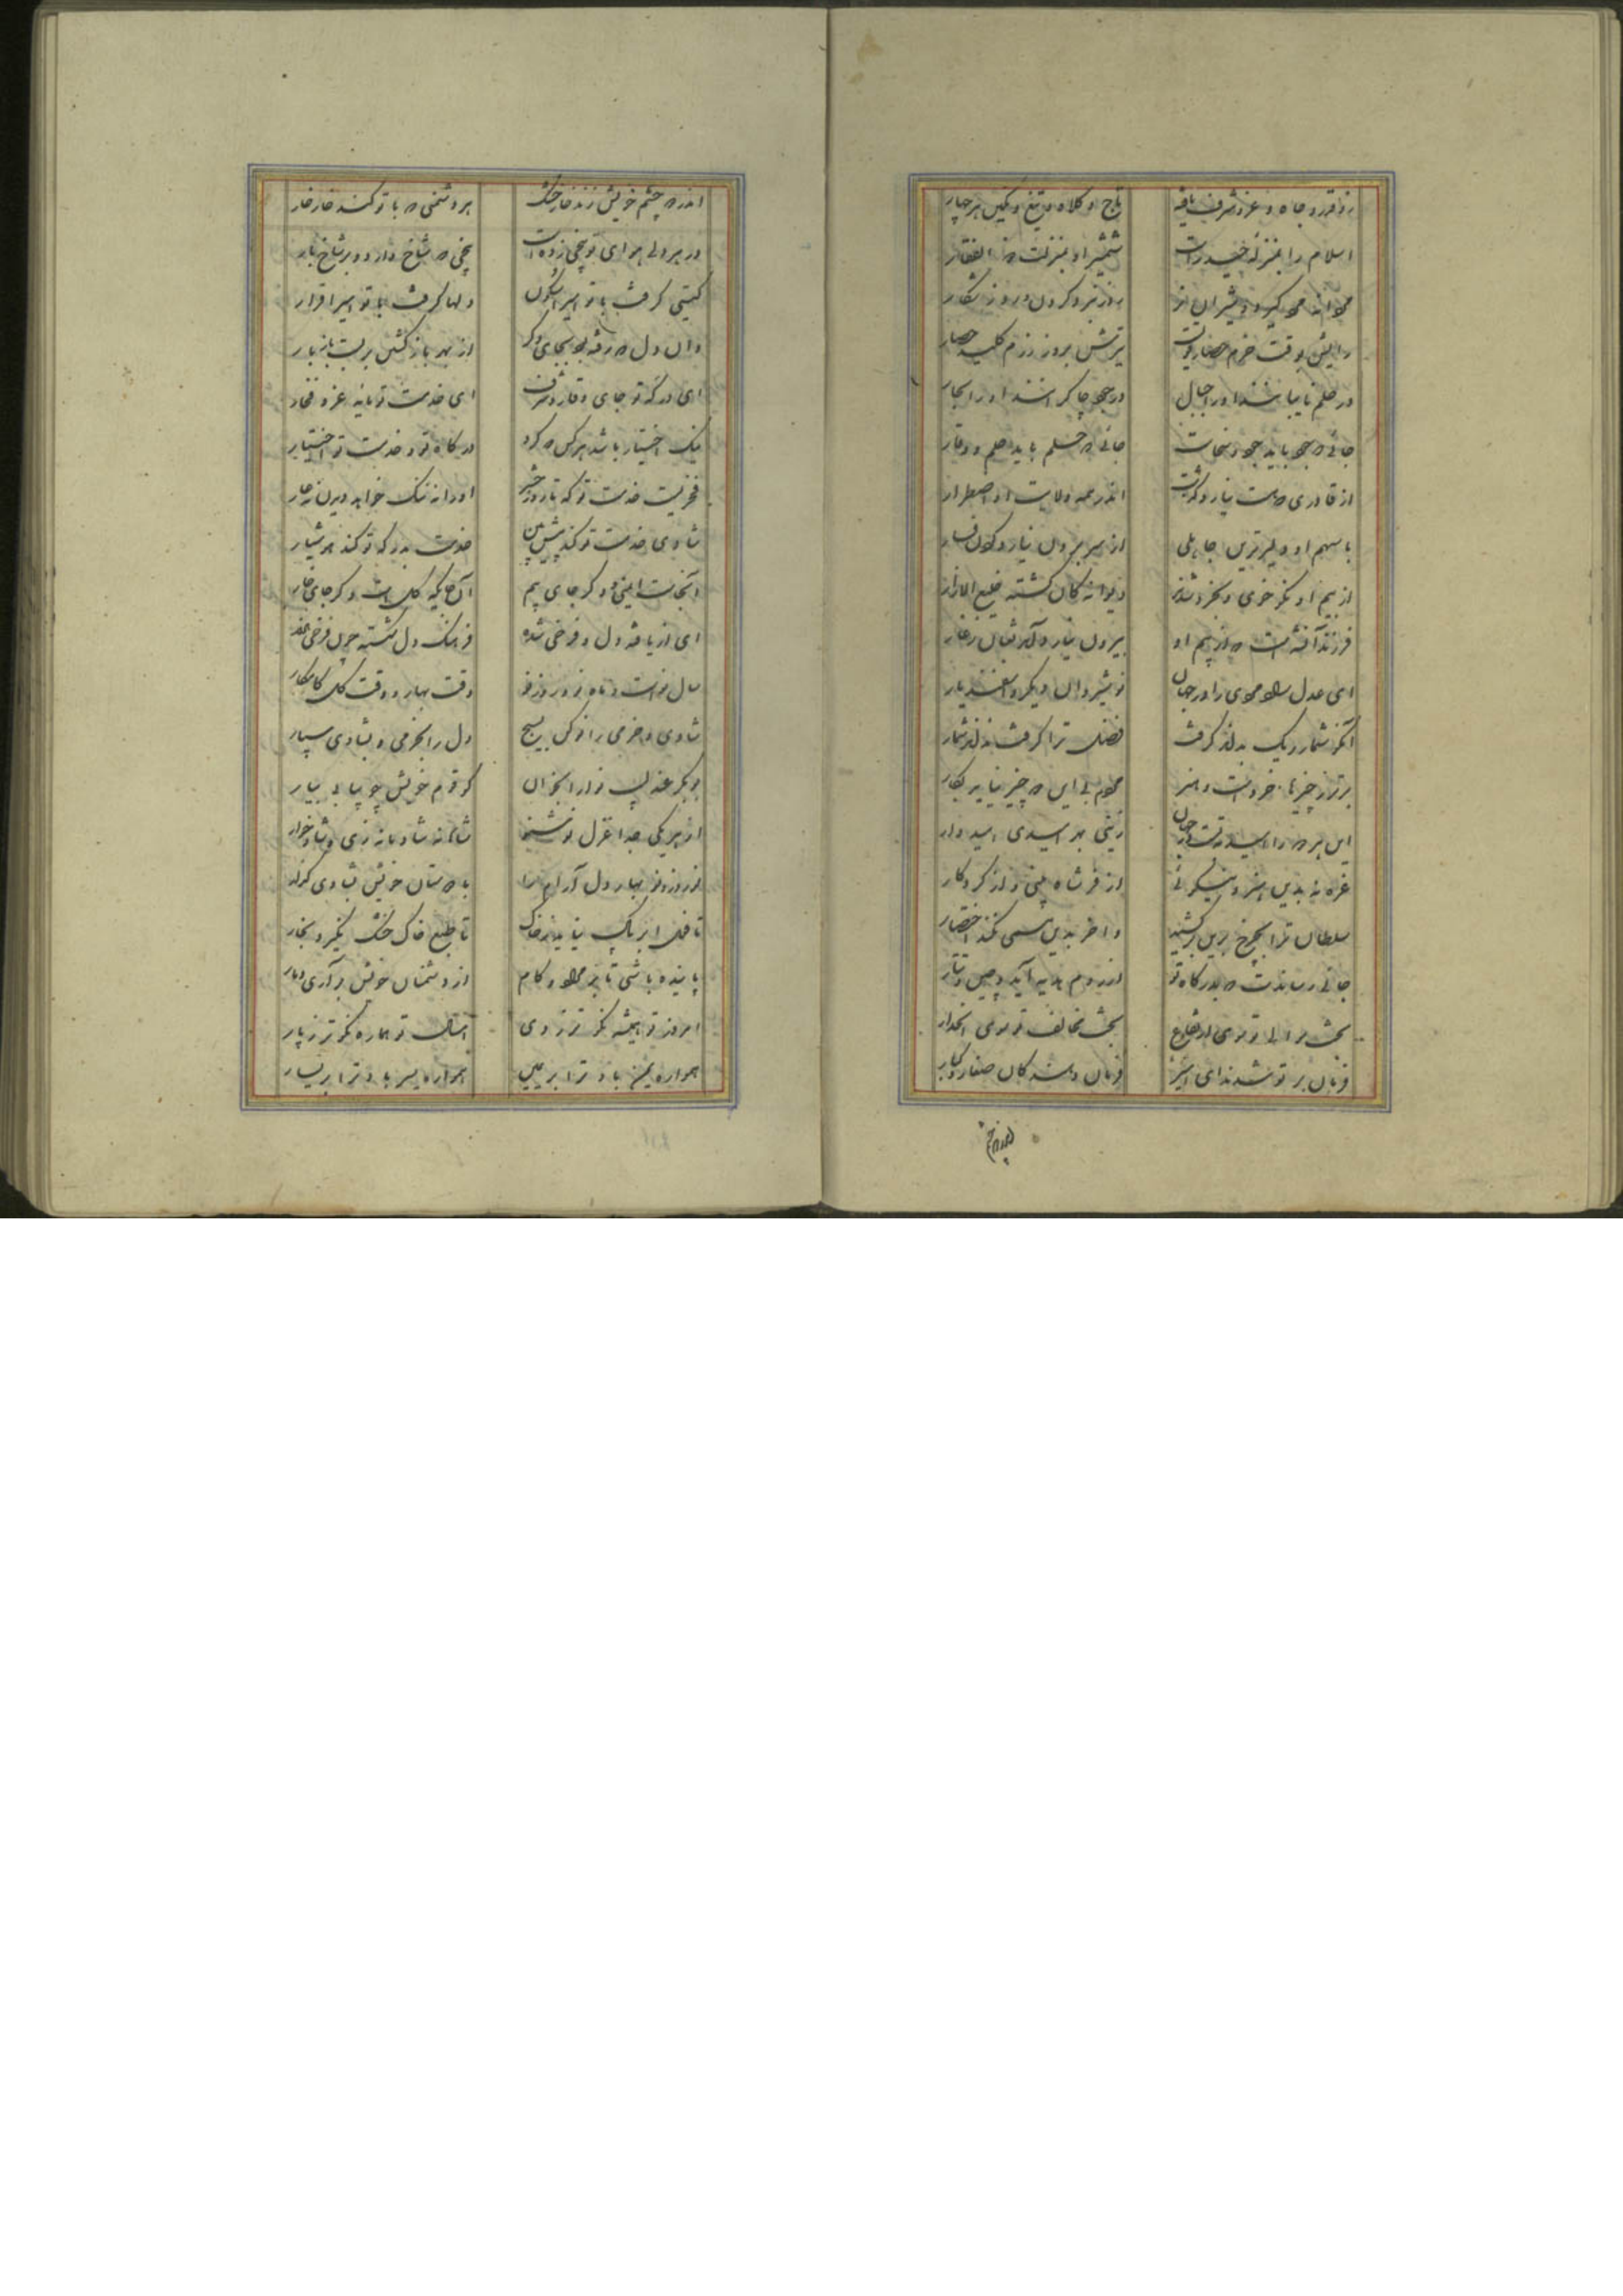 زو قدر و جاه و عز و شرف یافته
تاج و کلاه و تیغ و نگین هر چهار
اسلام را بمنزله حیدرست
شمشیر او بمنزلت ذوالفقار
روز نبرد کردن و روز شکار
رایش بوقت حزم حصار قویست
تیرش بروز رزم کلید حصار
در حلم نایبانند او را جبال
در جود چاکرانند او را بحار
جائی که جود باید جود و سخاست
جائی که حلم باید حلم و وقار
از قادری که هست نیارد گذشت
اندر همه ولایت او اضطرار
با سهم او دلیرترین جاهلی
از سر برون نیارد کردن فسار
از بیم او نکو خوی و بخرد شدند
دیوانگان گشته خلیع العذار
فرزند آن کسست که از بیم او
بیرون نیارد آمد ثعبان ز غار
ای عدل تو سوی را در جهان
نوشیروان دیگر و اسفندیار
آنگه شمار ریگ بداند گرفت
فضل ترا گرفت نداند شمار
برتر ز چیزها خردست و هنر
مردم بی این دو چیز نیاید بکار
این هر دو را امید توئی در جهان
زینی بهر امیدی امیدوار
غره نه بدین هنر و نیکوئی
از فر شاه بینی وز کردگار
سلطان ترا بچرخ برین برکشید
و آخر بدین همی نکند اختصار
جائی رساندت که بدرگاه تو
از روم هدیه آید و چین و تتار
بخت موالی تو سوی ارتفاع
بخت مخالف تو سوی انحدار
فرمان بر تو شدند ای امیر
فرمان دهندگان صغار و کبار
اندر دو چشم خویش زند خار خشک
هر دشمنی که با تو کند خارخار
در هر دلی هوای تو بیخی زدست
بیخی که شاخ دارد و بر شاخ بار
گیتی گرفت با تو امیرا سکون
دلها گرفت با تو امیرا قرار
وان دل که رفته بود بجای دگر
از مهر باز گشتن بربست بار
ای درگه تو جای وقار و شرف
ای خدمت تو مایه عز و فخار
نیک اختیار باشد هر کس که کرد
درگاه تو و خدمت تو اختیار
فخریست خدمت تو که تا روز حشر
او را نه ننگ خواهد دیدن نه عار
شادی خدمت تو کند پیش بین
خدمت بدرگه تو کند هوشیار
آنجاست ایمنی و دگر جای بیم
آن جایگه گلست و دگر جای خار
ای از تو یافته دل و فرخی شده
فرهنگ دل شکسته
سال نوست و ماه نو و روز نو
وقت بهار و وقت گل کامکار
شادی و خرمی را نو کن بسیج
دل را بخرمی و بشادی سپار
بوبکر عندلیب نو را بخوان
گو قوم خویش چو بیایی بیار
از هر یکی جدا غزل نو شنو
شاهانه شادمانه زی و شادخوار
نوروز و نوبهار دل آرام را
با دوستان خویش بشادی گذار
تا طبع خاک خشک نگیرد بخار
پاینده باشی تا بمراد و کام
از دشمنان خویش برآری دمار
امروز تو همیشه نکوتر ز دی
امسال تو هماره نکوتر ز پار
همواره یمن باد ترا بر یمین
همواره یسر باد ترا بر یسار